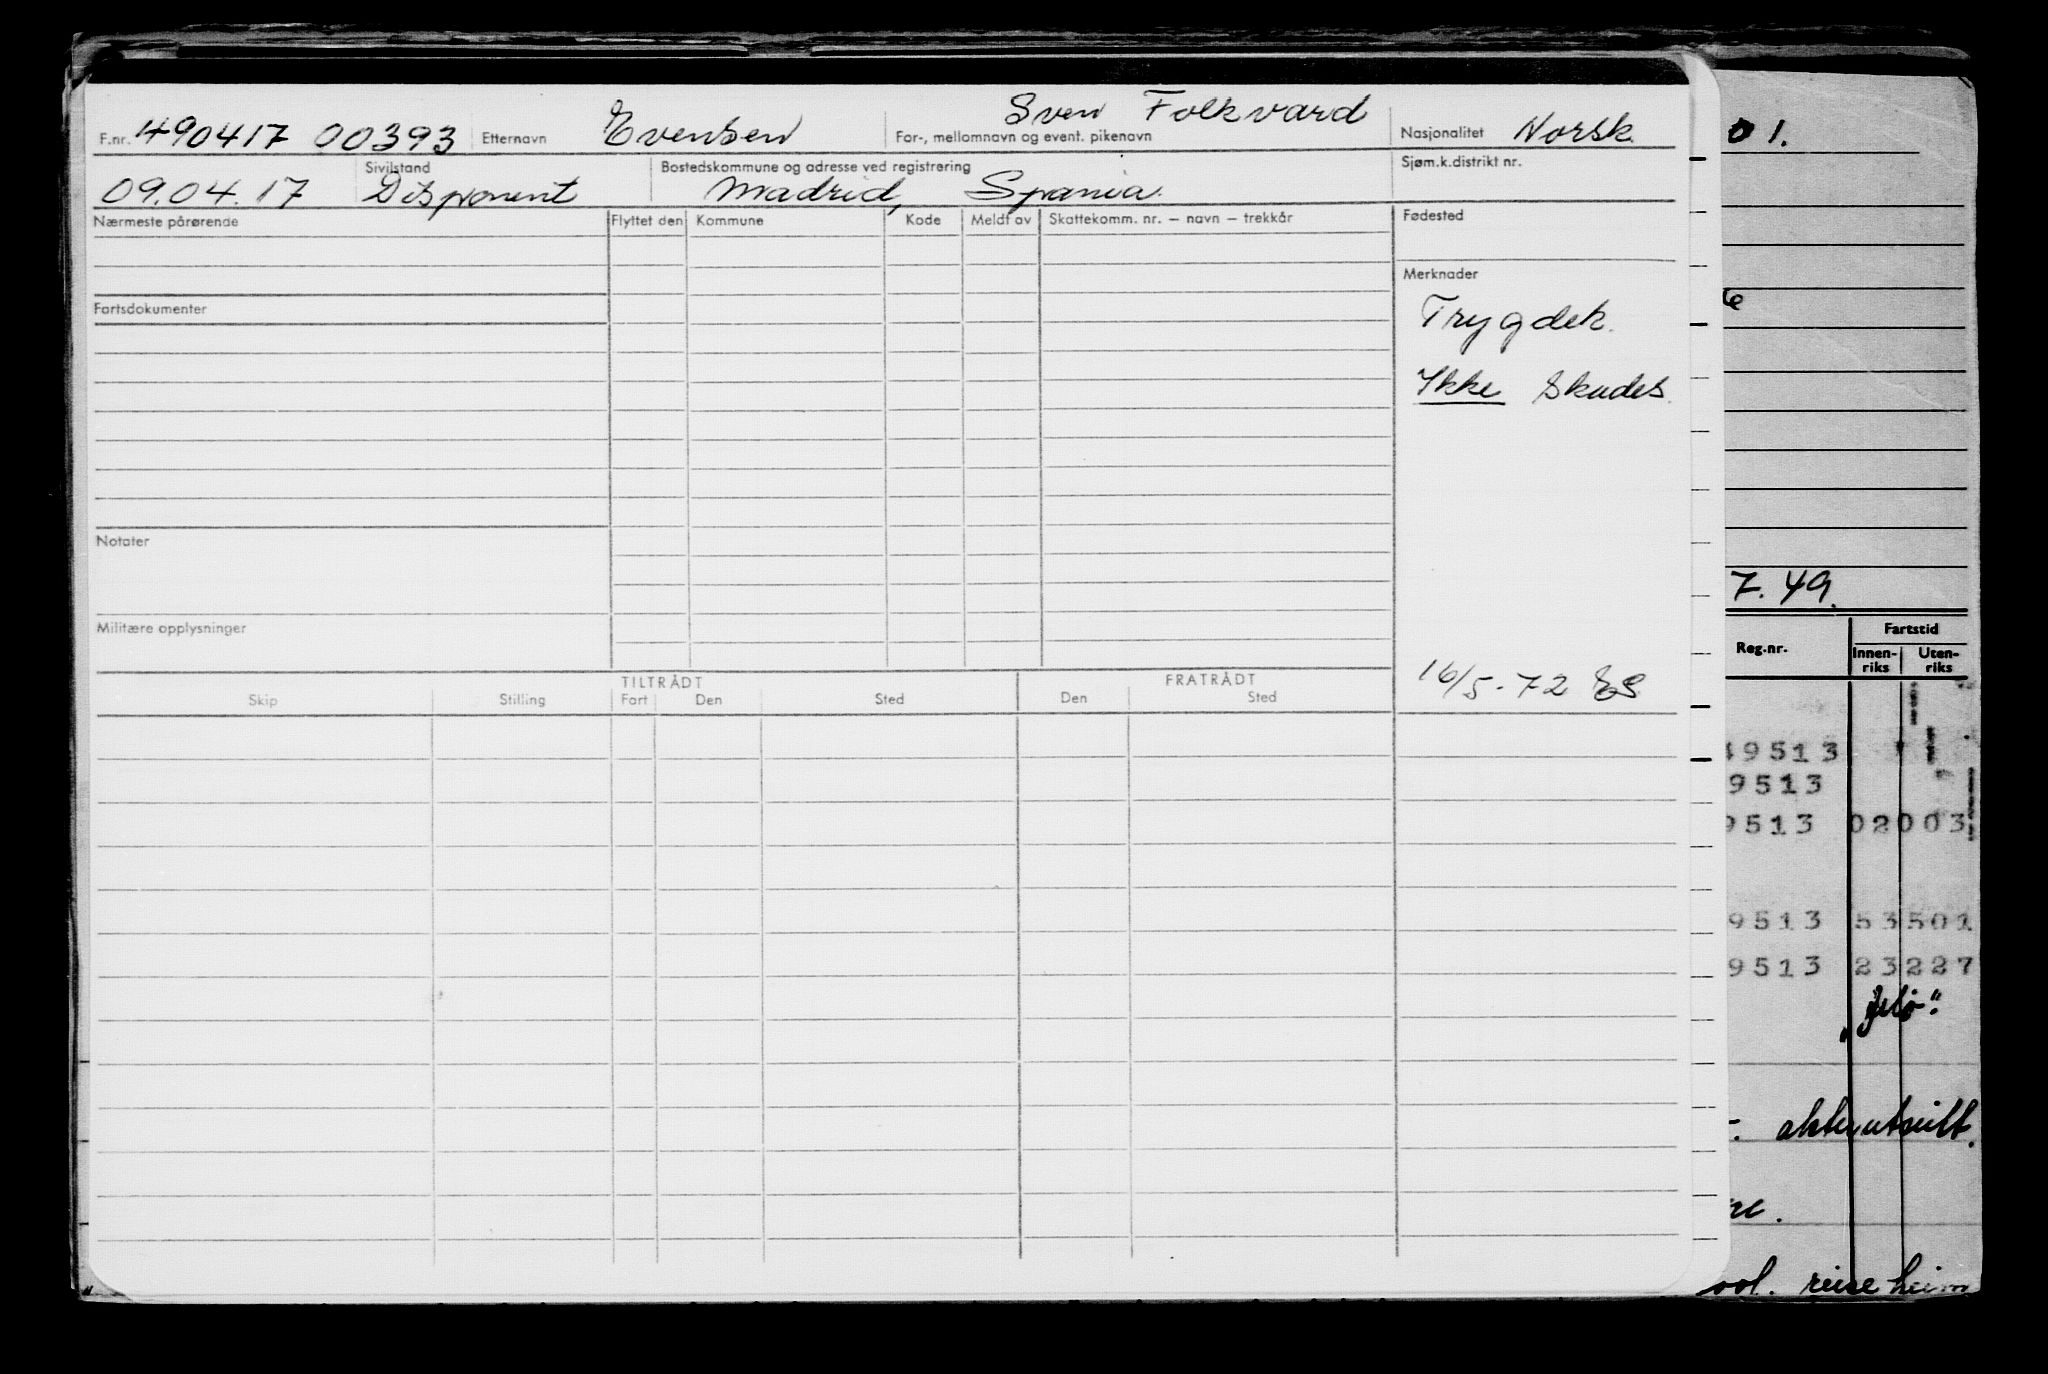 F.nr. 490417 00393 Etternavn Evensen For-, mellomnavn og event. pikenavn Sven Folkvard Nasjonalitet Norsk
09.04.17 Sivilstand Disponent Bostedskommune og adresse ved registrering Madrid, Spania. Sjøm.k.distrikt nr.
Nærmeste pårørende Flyttet den Kommune Kode Meldt av Skattekomm. nr. – navn – trekkår Fødested
Merknader
Fartsdokumenter
Trygdek.
Ikke Skades.
Notater
Militære opplysninger
16/5-72 ES
TILTRÅDT FRATRÅDT
Skip Stilling Fart Den Sted Den Sted
01.
7.49.
Reg.nr. Fartstid
Innen-riks Uten-riks
49513
9513
9513 02003
9513 53501
9513 23227
reise heim